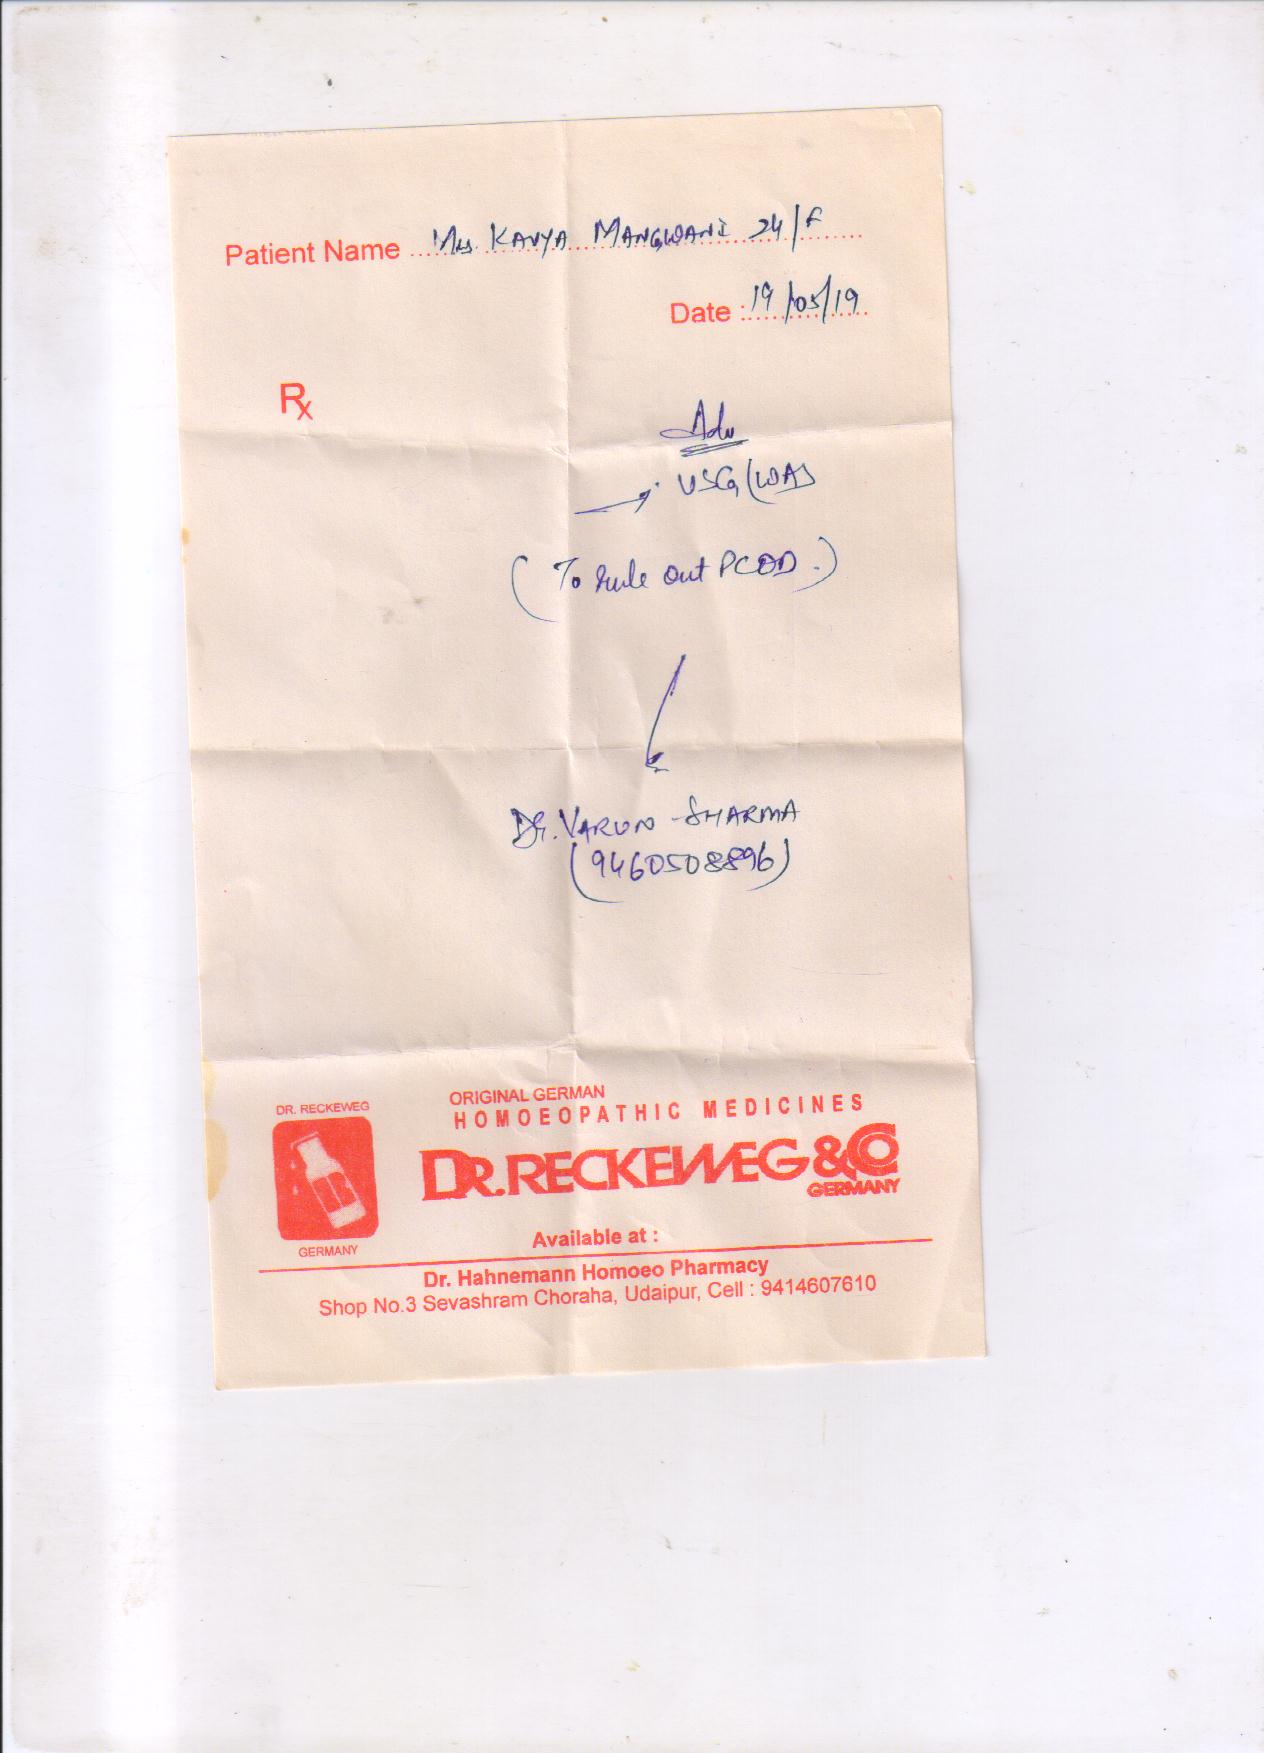 Patient Name Mrs. KAVYA MANGWANI 24/F
Date : 19/05/19
Rx
Adv
USG (WA)
(To rule out PCOD.)
Dr. VARUN SHARMA
(9460508896)
ORIGINAL GERMAN
HOMOEOPATHIC MEDICINES
DR. RECKEWEG
DR.RECKEWEG & CO
GERMANY
GERMANY
Available at :
Dr. Hahnemann Homoeo Pharmacy
Shop No.3 Sevashram Choraha, Udaipur, Cell : 9414607610